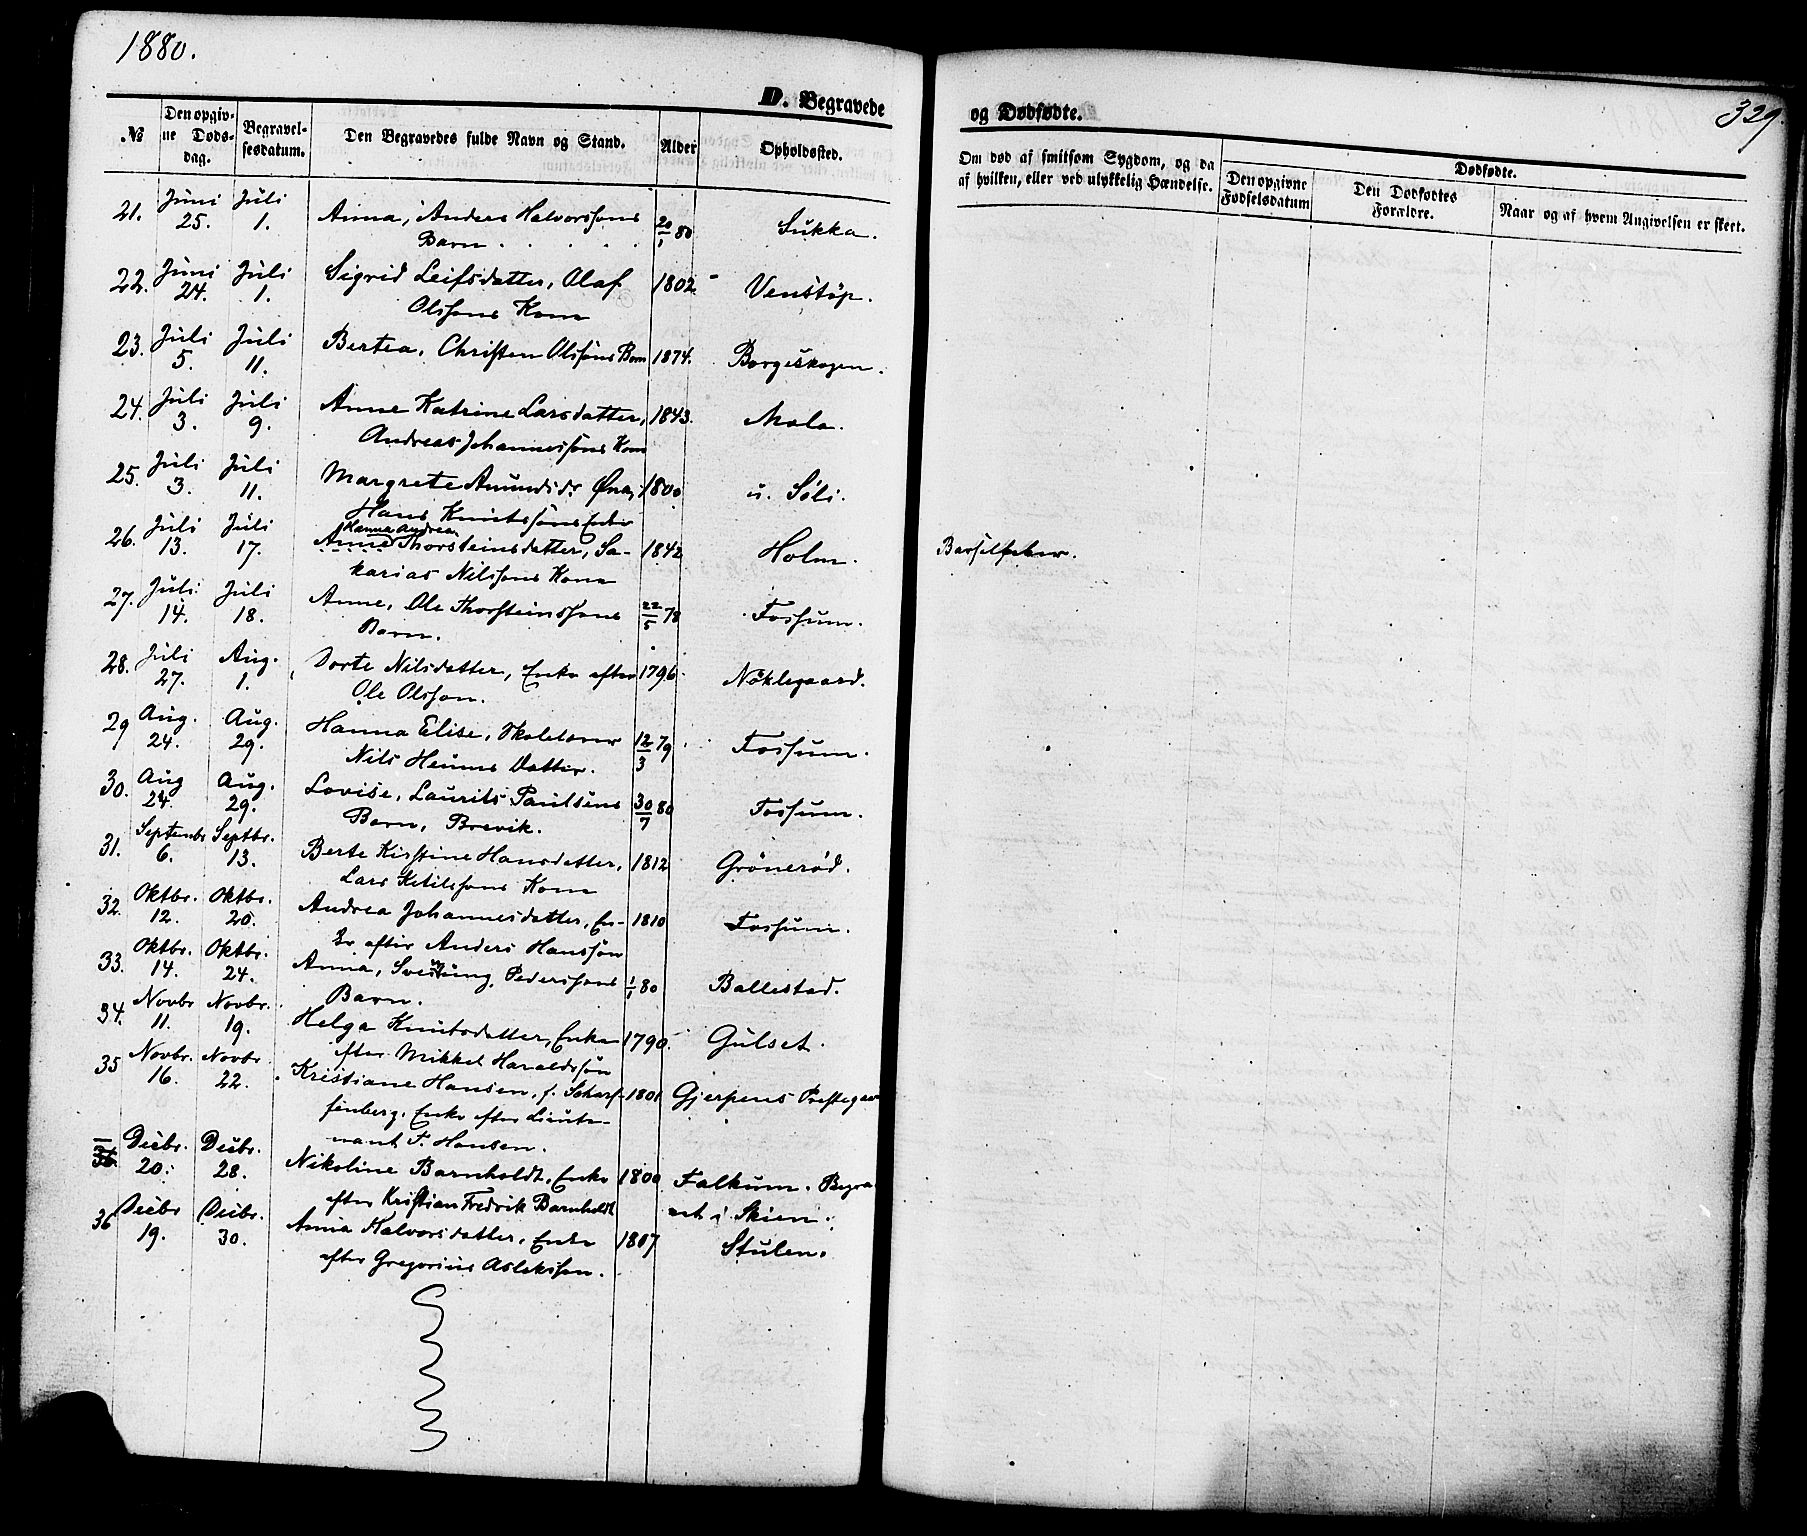 1880.
D. Begravede
og Dødfødte.
329.
№
Den opgiv-
ne Døds-
dag.
Begravel-
sesdatum.
Den Begravedes fulde Navn og Stand.
Alder
Opholdssted.
Om død af smitsom Sygdom, og da
af hvilken, eller ved ulykkelig Hændelse.
Dødfødte.
Den opgivne
Fødselsdatum
Den Dødfødtes
Forældre.
Naar og af hvem Angivelsen er skeet.
21. Juni 25. Juli 1. Anna, Anders Halvorssøns 20/1 80 Sukka.
Barn
22. Juni 24. Juli 1. Sigrid Leifsdatter, Olaf 1802. Venstøp.
Olssøns Kone
23. Juli 5. Juli 11. Bertea, Christen Olsøns Barn 1874. Borgeskogen.
24. Juli 3. Juli 9. Anne Katrine Larsdatter, 1843. Mola.
Andreas Johannessøns Kone
25. Juli 3. Juli 11. Margrete Amundsdr. 1800 u. Søli.
Hans Knutssøns Enke
Hanna Andrea
26. Juli 13. Juli 17. Anne Thorsteinsdatter, Sa- 1842 Holm. Barselfeber.
karias Nilssøns Kone
27. Juli 14. Juli 18. Anne, Ole Thorsteinssøns 22/5 78 Fossum.
Barn.
28. Juli 27. Aug. 1. Dorte Nilsdatter, Enke efter 1796. Nöklegaard.
Ole Olsson.
29 Aug. 24. Aug. 29. Hanna Elise, Skolelærer 12/3 79 Fossum.
Nils Heums Datter.
30. Aug 24. Aug. 29. Lovise, Laurits Paulsens 30/7 80 Fossum.
Barn, Brevik.
31. Septembr 6. Septbr. 13. Berte Kirstine Hansdatter, 1812 Grönerød.
Lars Ketilssøns Kone
32. Oktbr. 12. Oktbr. 20. Andrea Johannesdatter, En- 1810 Fossum.
ke efter Anders Hanssøn
33. Oktbr. 14. Oktbr. 24. Anna, Sveinung Pederssøns 1/1 80 Ballestad.
Barn.
34. Novbr 11. Novbr. 19. Helga Knutsdatter, Enke 1790. Gulset.
efter Mikkel Haraldssøn
35 Novbr. 16. Novbr. 22. Kristiane Hansen, f. Scharf- 1801 Gjerpens Prestegaar
fenberg. Enke efter Lieute-
nant F. Hansen.
36. Decbr. 20. Decbr. 28. Nikoline Barnholdt, Enke 1800 Falkum. Begra-
efter Kristian Fredrik Barnholdt vet i Skien.
36 Decbr 19. Decbr. 30. Anna Halvorsdatter, Enke 1807 Stulen.
efter Gregorius Aslekssen.